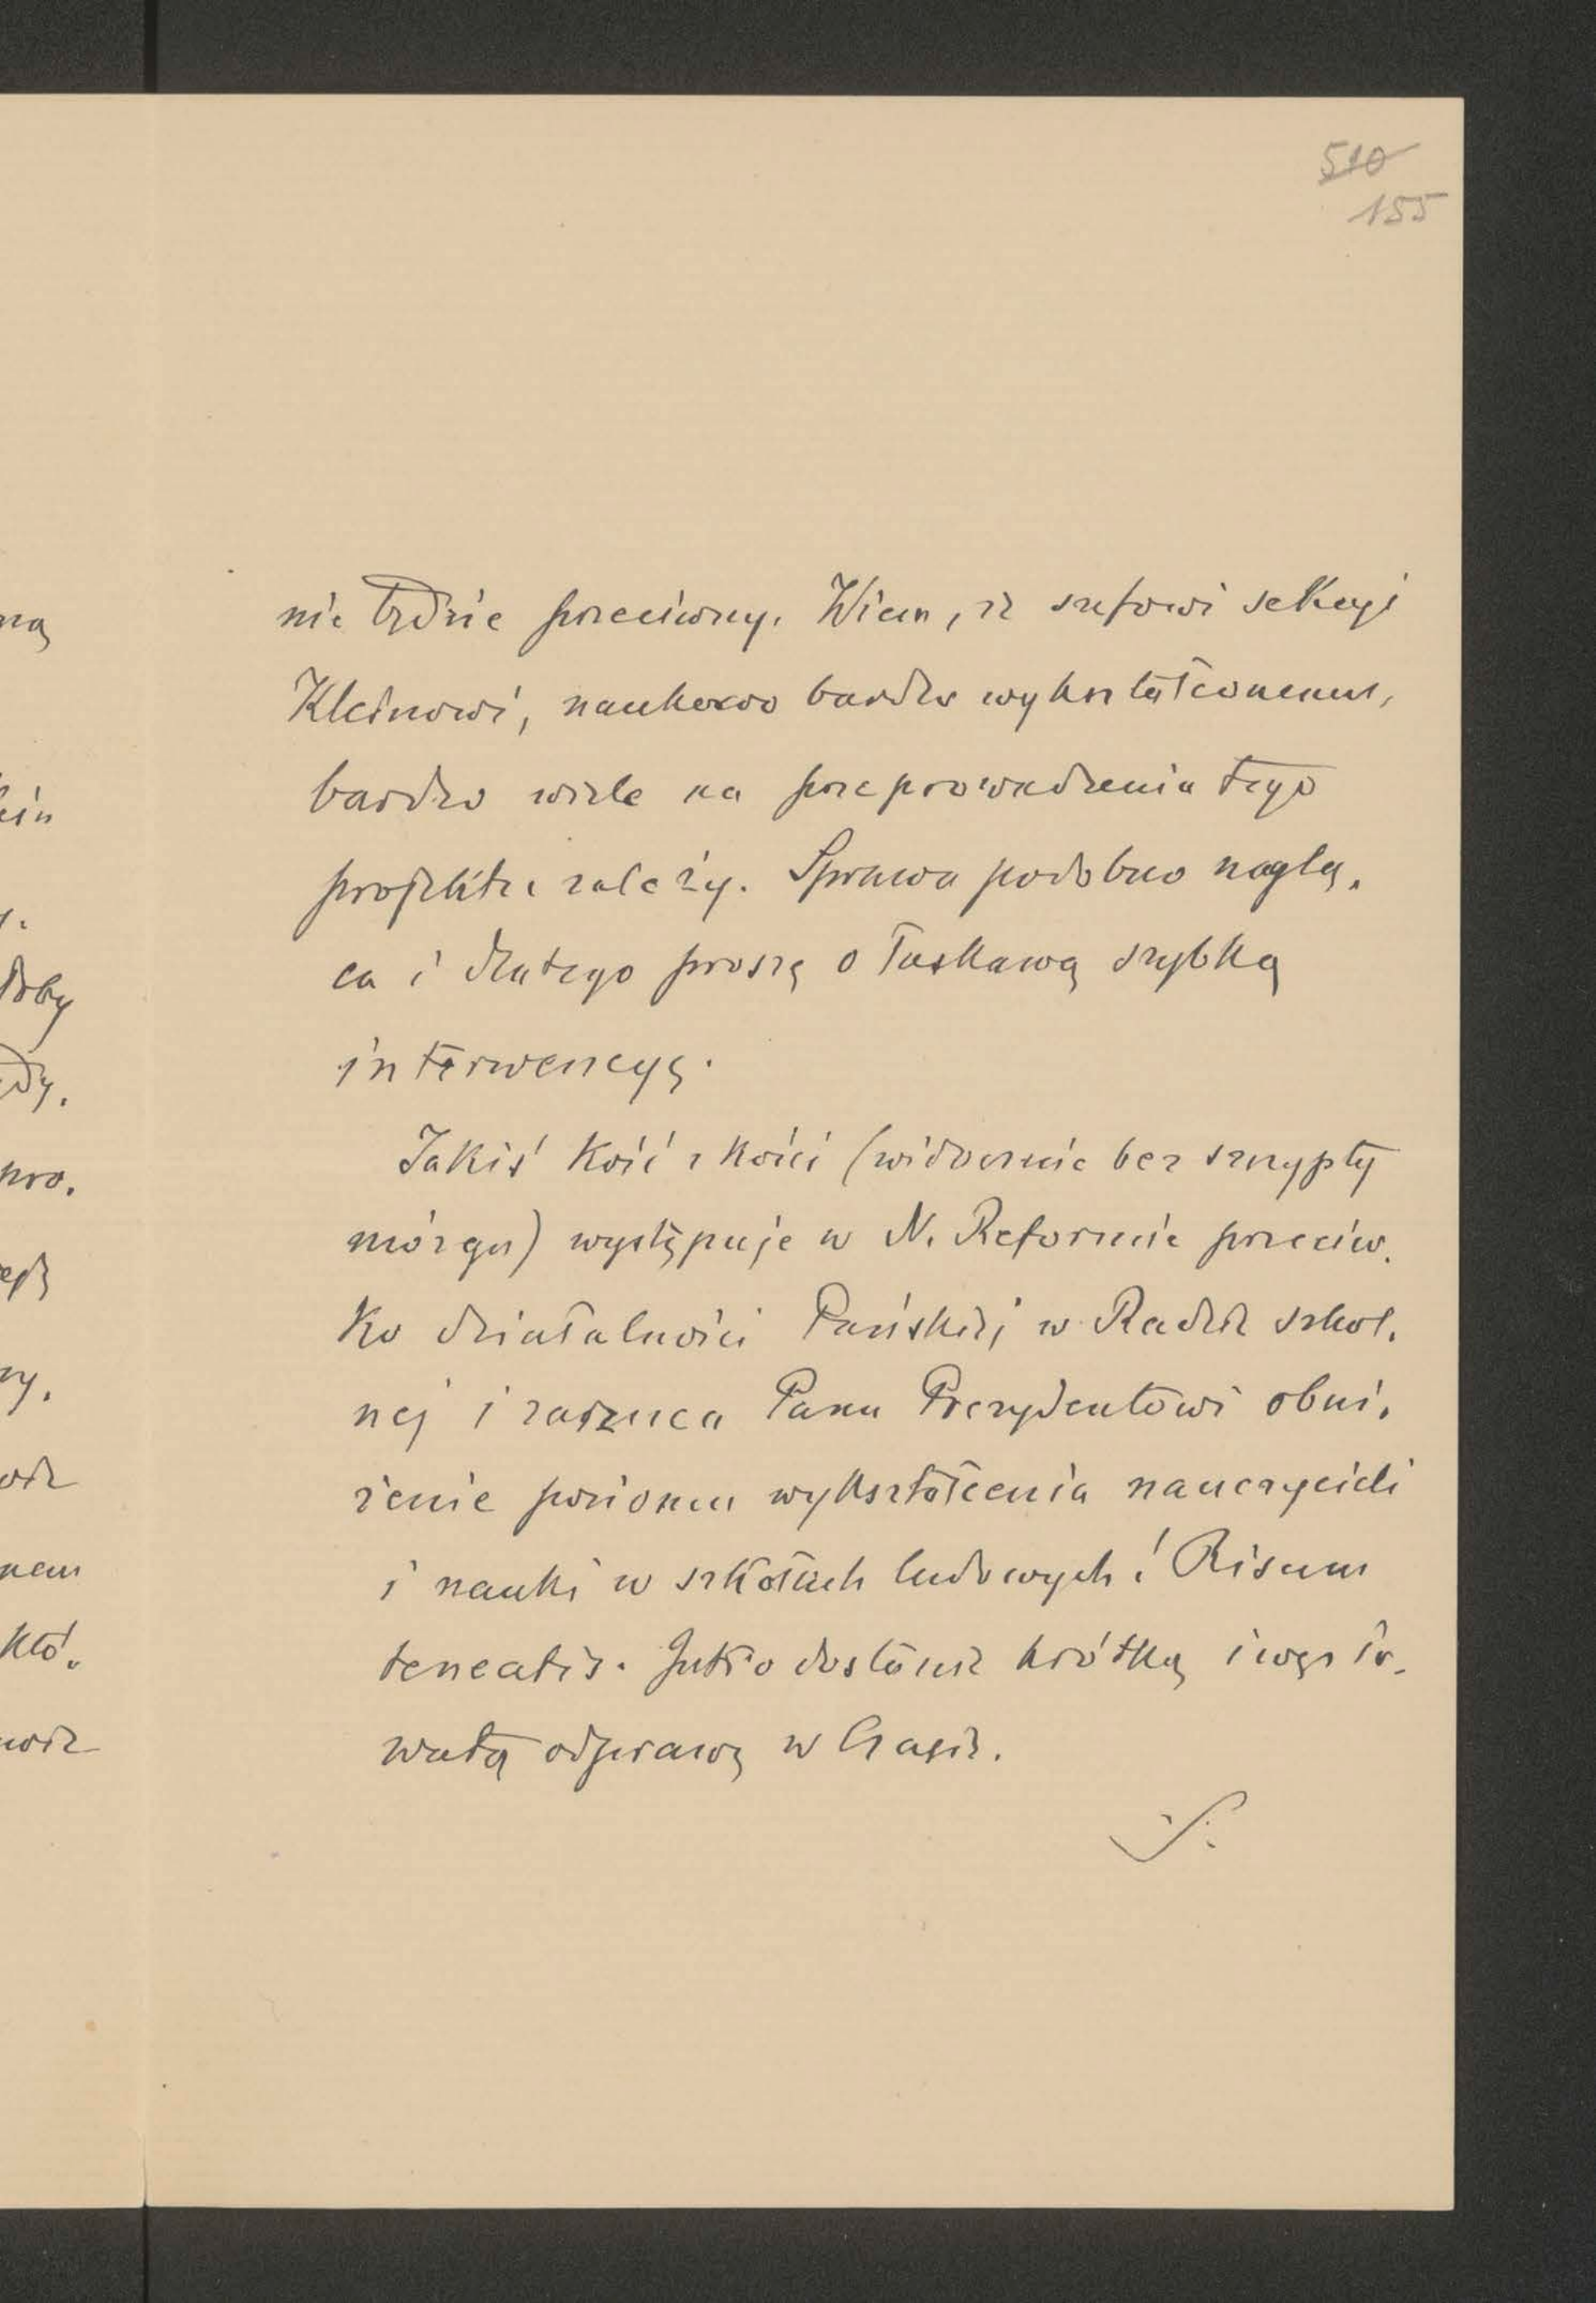 510
155
nie będzie przeciwny. Wiem, iż szefowi sekcyi
Kleinowi, naukowo bardzo wykształconemu,
bardzo wiele na przeprowadzenia tego
projektu zależy. Sprawa podobno nagłą,
ca i dlatego proszę o łaskawą szybką
interwencyę.
Jakiś kość z kości (widocznie bez szczypty
mózgu) występuje w N. Reformie przeciw.
ko działalności Pańskiej w Radzie szkol.
nej i zarzuca Panu Prezydentowi obni.
żenie poziomu wykształcenia nauczycieli
i nauki w szkołach ludowych! Risum
teneatis. Jutro dostanie krótką i węzło-
watą odprawę w Czasie.
S.
ną
ein
doby
dy.
pro.
ny.
nem
któ.